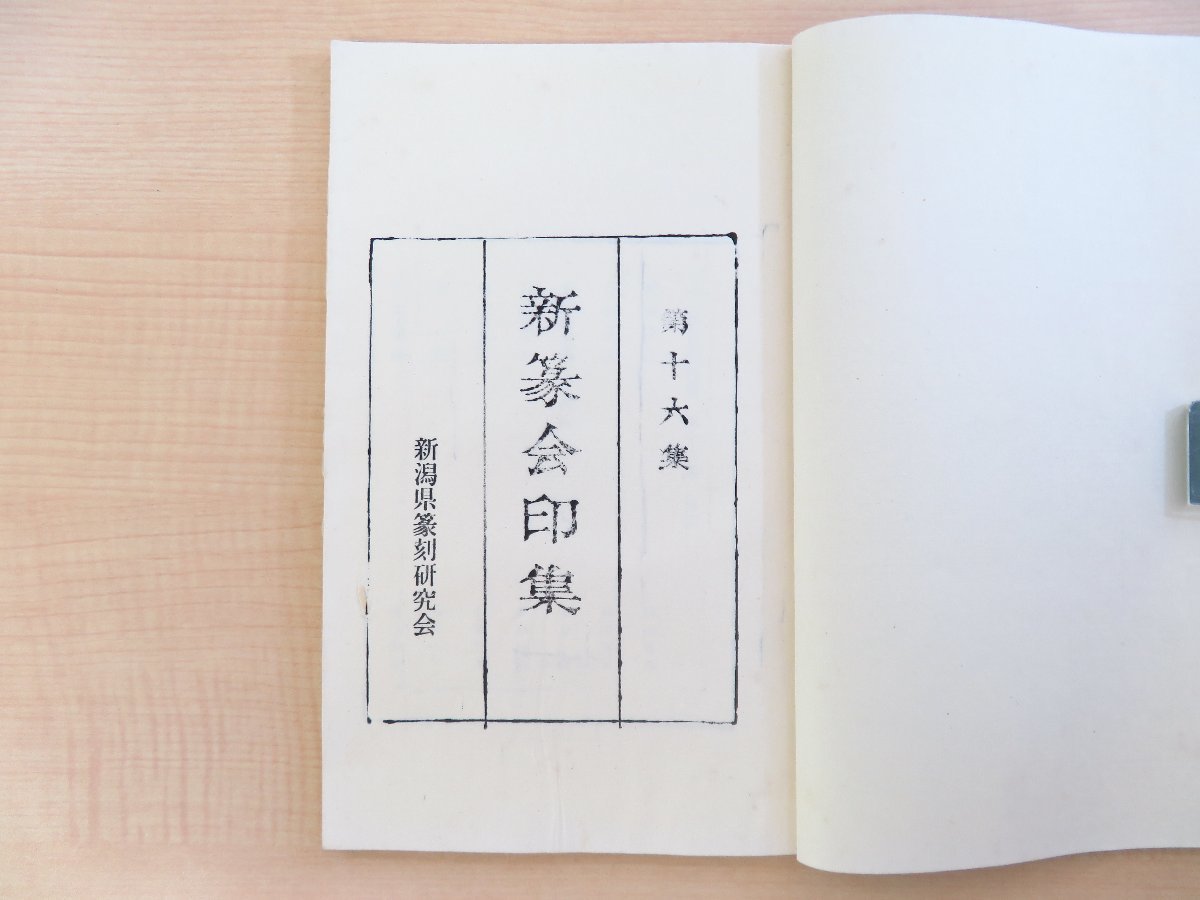 第十六集
新篆会印集
新潟県篆刻研究会